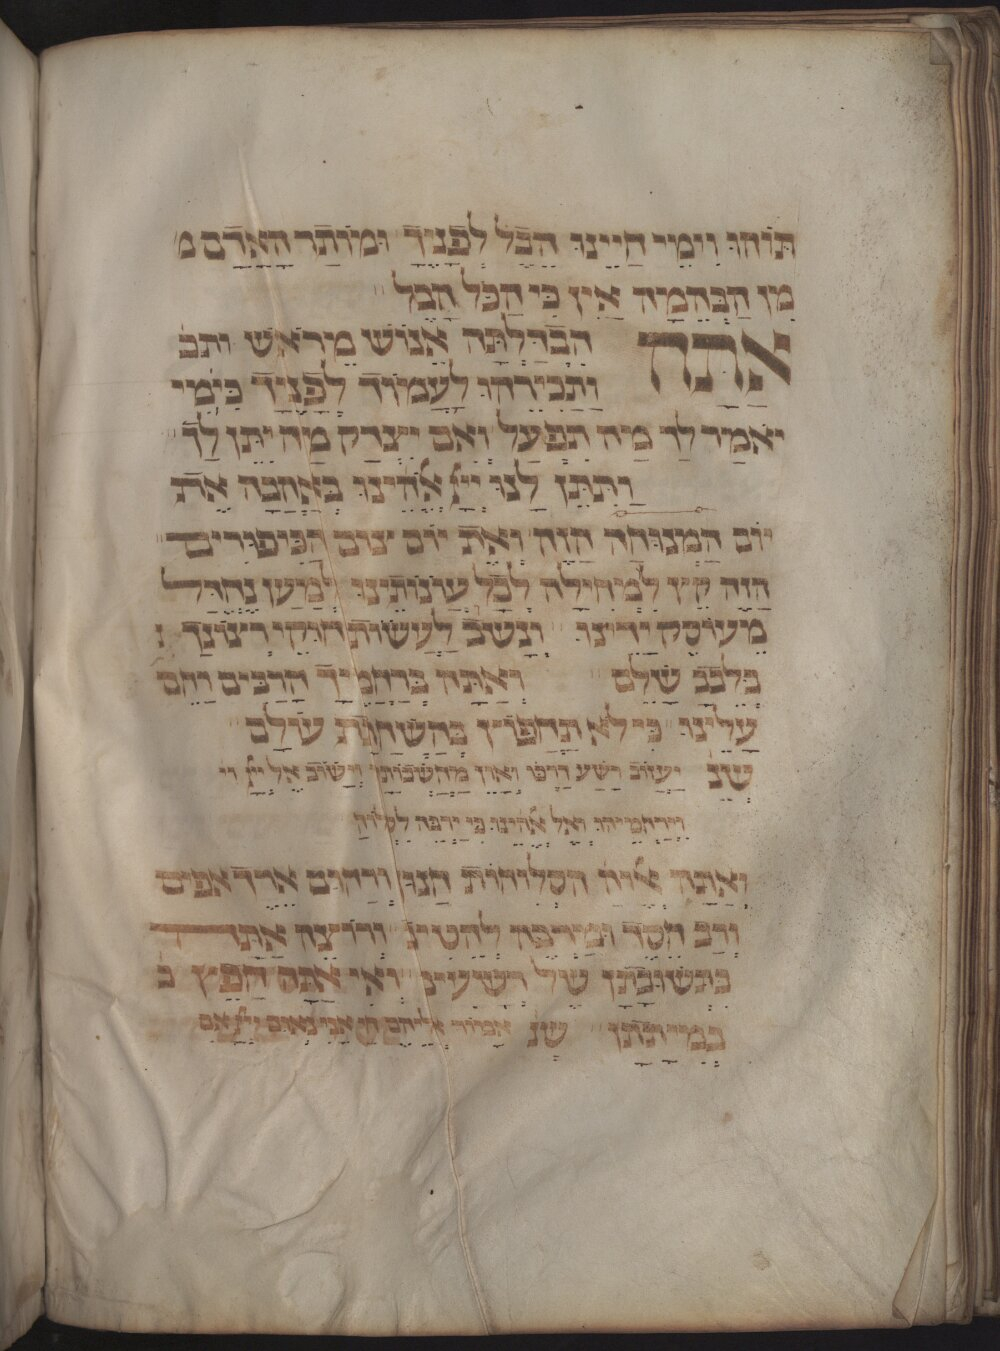 תוהו וימי חיינו הבל לפניך ומותר האדם מ
מן הבהמה אין כי הכל הבל
אתה הבדלתה אנוש מראש ותכ
ותכירהו לעמוד לפניך כי מי
יאמר לך מה תפעל ואם יצדק מה יתן לך
ותתן לנו ייי אלהינו באהבה את
יום המנוחה הזה ואת יום צום הכיפורים
הזה קץ למחילה לכל עונותינו למען נחדל
מעושק ידינו ונשוב לעשות חוקי רצונך
בלבב שלם ואתה ברחמיך הרבים רחם
עלינו כי לא תחפוץ בהשחתת עולם
שנ יעזוב רשע דרכו ואון מחשבותיו וישוב אל ייי וי
וירחמיהו ואל אלהינו כי ירבה לסלוח
ואתה אלוה הסליחות חנון ורחום ארך אפים
ורב חסד ומרבה להטיב ורוצה אתה
בתשובתן של רשעים ואי אתה חפץ ב
במיתתן שנ אמור אליהם חי אני נאום ייי אם